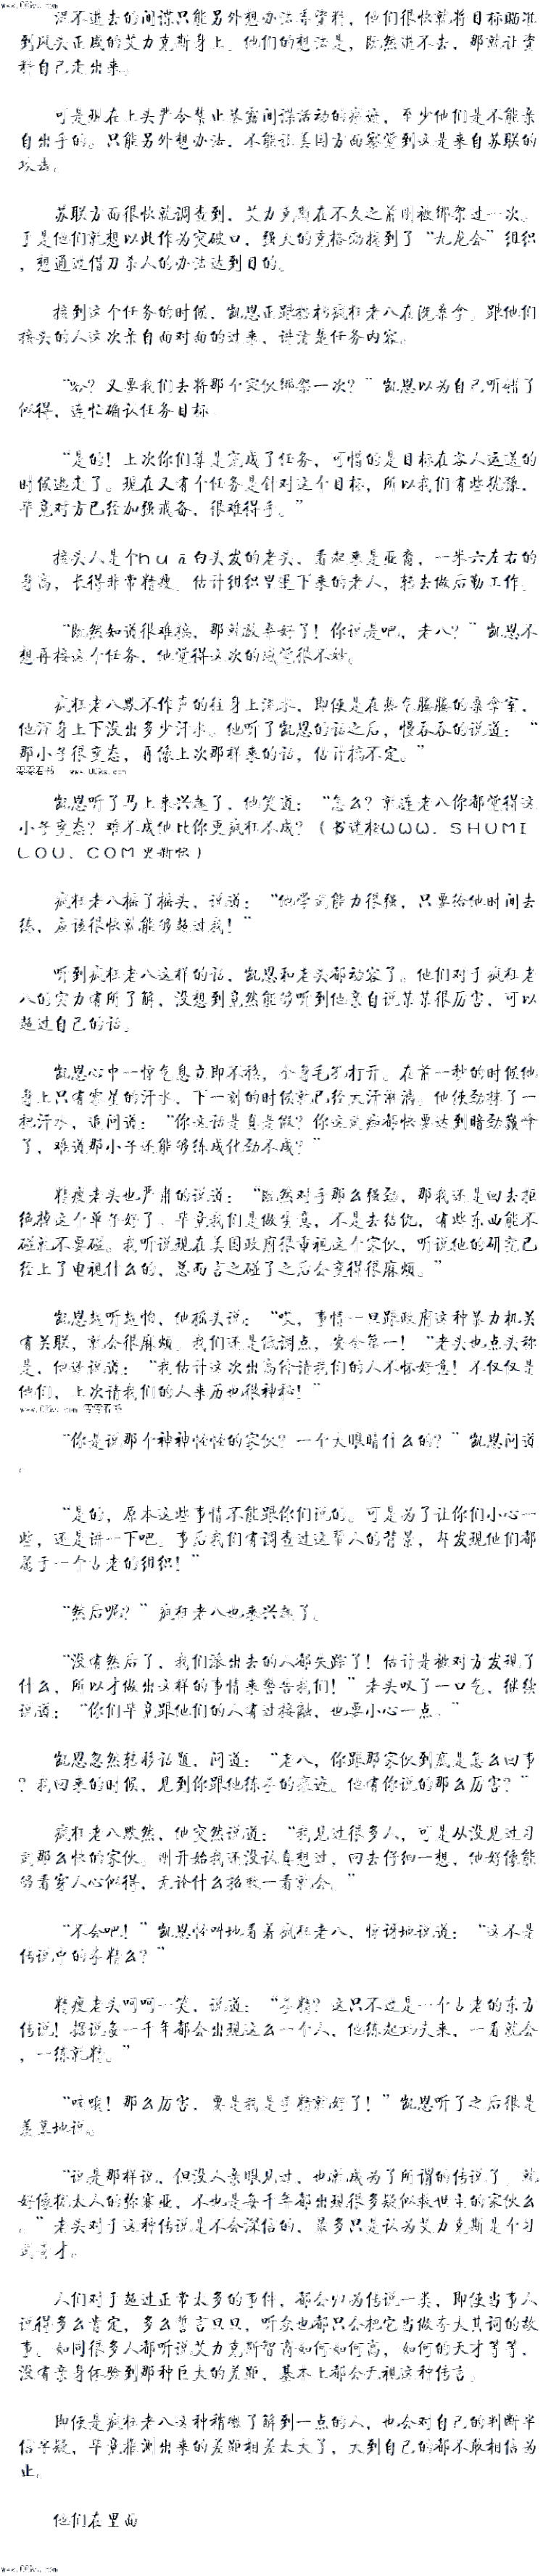 混不进去的间谍只能另外想办法弄资料，他们很快就将目标瞄准
到风头正盛的艾力克斯身上。他们的想法是，既然进不去，那就让资
料自己走出来。
可是现在上头严令禁止暴露间谍活动的痕迹，至少他们是不能亲
自出手的。只能另外想办法，不能让美国方面察觉到这是来自苏联的
攻击。
苏联方面很快就调查到，艾力克斯在不久之前刚被绑架过一次。
于是他们就想以此作为突破口，强大的克格勃找到了“九龙会”组织
，想通过借刀杀人的办法达到目的。
接到这个任务的时候，凯恩正跟搭档疯狂老八在洗桑拿。跟他们
接头的人这次亲自面对面的过来，讲清楚任务内容。
“哈？又要我们去将那个家伙绑架一次？”凯恩以为自己听错了
似得，连忙确认任务目标。
“是的！上次你们算是完成了任务，可惜的是目标在客人运送的
时候逃走了。现在又有个任务是针对这个目标，所以我们有些犹豫，
毕竟对方已经加强戒备，很难得手。”
接头人是个huā白头发的老头，看起来是亚裔，一米六左右的
身高，长得非常精瘦。估计组织里退下来的老人，转去做后勤工作。
“既然知道很难搞，那就放弃好了！你说是吧，老八？”凯恩不
想再接这个任务，他觉得这次的感觉很不妙。
疯狂老八默不作声的往身上浇水，即使是在热气腾腾的桑拿室，
他浑身上下没出多少汗水。他听了凯恩的话之后，慢吞吞的说道：“
那小子很变态，再像上次那样来的话，估计搞不定。”
零零看书 www.00ks.com
凯恩听了马上来兴趣了，他笑道：“怎么？就连老八你都觉得这
小子变态？难不成他比你更疯狂不成？（书迷楼WWW.SHUMI
LOU.COM更新快）
疯狂老八摇了摇头，说道：“他学武能力很强，只要给他时间去
练，应该很快就能够超过我！”
听到疯狂老八这样的话，凯恩和老头都动容了。他们对于疯狂老
八的实力有所了解，没想到竟然能够听到他亲自说某某很厉害，可以
超过自己的话。
凯恩心中一惊气息立即不稳，全身毛孔打开。在前一秒的时候他
身上只有零星的汗水，下一刻的时候就已经大汗淋漓。他使劲抹了一
把汗水，追问道：“你这话是真是假？你这武痴都快要达到暗劲巅峰
了，难道那小子还能够练成化劲不成？”
精瘦老头也严肃的说道：“既然对手那么强劲，那我还是回去拒
绝掉这个单子好了。毕竟我们是做生意，不是去结仇，有些东西能不
碰就不要碰。我听说现在美国政府很重视这个家伙，听说他的研究已
经上了电视什么的，总而言之碰了之后会变得很麻烦。”
凯恩越听越怕，他摇头说：“哎，事情一旦跟政府这种暴力机关
有关联，就会很麻烦。我们还是低调点，安全第一！”老头也点头称
是，他还说道：“我估计这次出高价请我们的人不怀好意！不仅仅是
他们，上次请我们的人来历也很神秘！”
www.00ks.com 零零看书
“你是说那个神神怪怪的家伙？一个大眼睛什么的？”凯恩问道
。
“是的，原本这些事情不能跟你们说的。可是为了让你们小心一
些，还是讲一下吧。事后我们有调查过这帮人的背景，却发现他们都
属于一个古老的组织！”
“然后呢？”疯狂老八也来兴趣了。
“没有然后了，我们派出去的人都失踪了！估计是被对方发现了
什么，所以才做出这样的事情来警告我们！”老头叹了一口气，继续
说道：“你们毕竟跟他们的人有过接触，也要小心一点。”
凯恩忽然转移话题，问道：“老八，你跟那家伙到底是怎么回事
？我回来的时候，见到你跟他练手的痕迹。他有你说的那么厉害？”
疯狂老八默然，他突然说道：“我见过很多人，可是从没见过习
武那么快的家伙。刚开始我还没认真想过，回去仔细一想，他好像能
够看穿人心似得，无论什么招数一看就会。”
“不会吧！”凯恩怪叫地看着疯狂老八，惊讶地说道：“这不是
传说中的拳精么？”
精瘦老头呵呵一笑，说道：“拳精？这只不过是一个古老的东方
传说！据说每一千年都会出现这么一个人，他练起功夫来，一看就会
，一练就精。”
“哎哦！那么厉害，要是我是拳精就好了！”凯恩听了之后很是
羡慕地说。
“说是那样说，但没人亲眼见过，也就成为了所谓的传说了。就
好像犹太人的弥赛亚，不也是每千年都出现很多疑似救世主的家伙么
。”老头对于这种传说是不会深信的，最多只是认为艾力克斯是个习
武奇才。
人们对于超过正常太多的事件，都会归为传说一类，即使当事人
说得多么肯定，多么誓言旦旦，听众也都只会把它当做夸大其词的故
事。如同很多人都听说艾力克斯智商如何如何高，如何的天才等等，
没有亲身体验到那种巨大的差距，基本上都会无视这种传言。
即使是疯狂老八这种稍微了解到一点的人，也会对自己的判断半
信半疑，毕竟推测出来的差距相差太大了，大到自己的都不敢相信为
止。
他们在里面